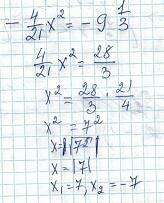 - 4/21 x² = - 9 1/3
4/21 x² = 28/3
x² = 28/3 · 21/4
x² = 7²
x = |√7²|
x = |7|
x₁ = 7, x₂ = -7